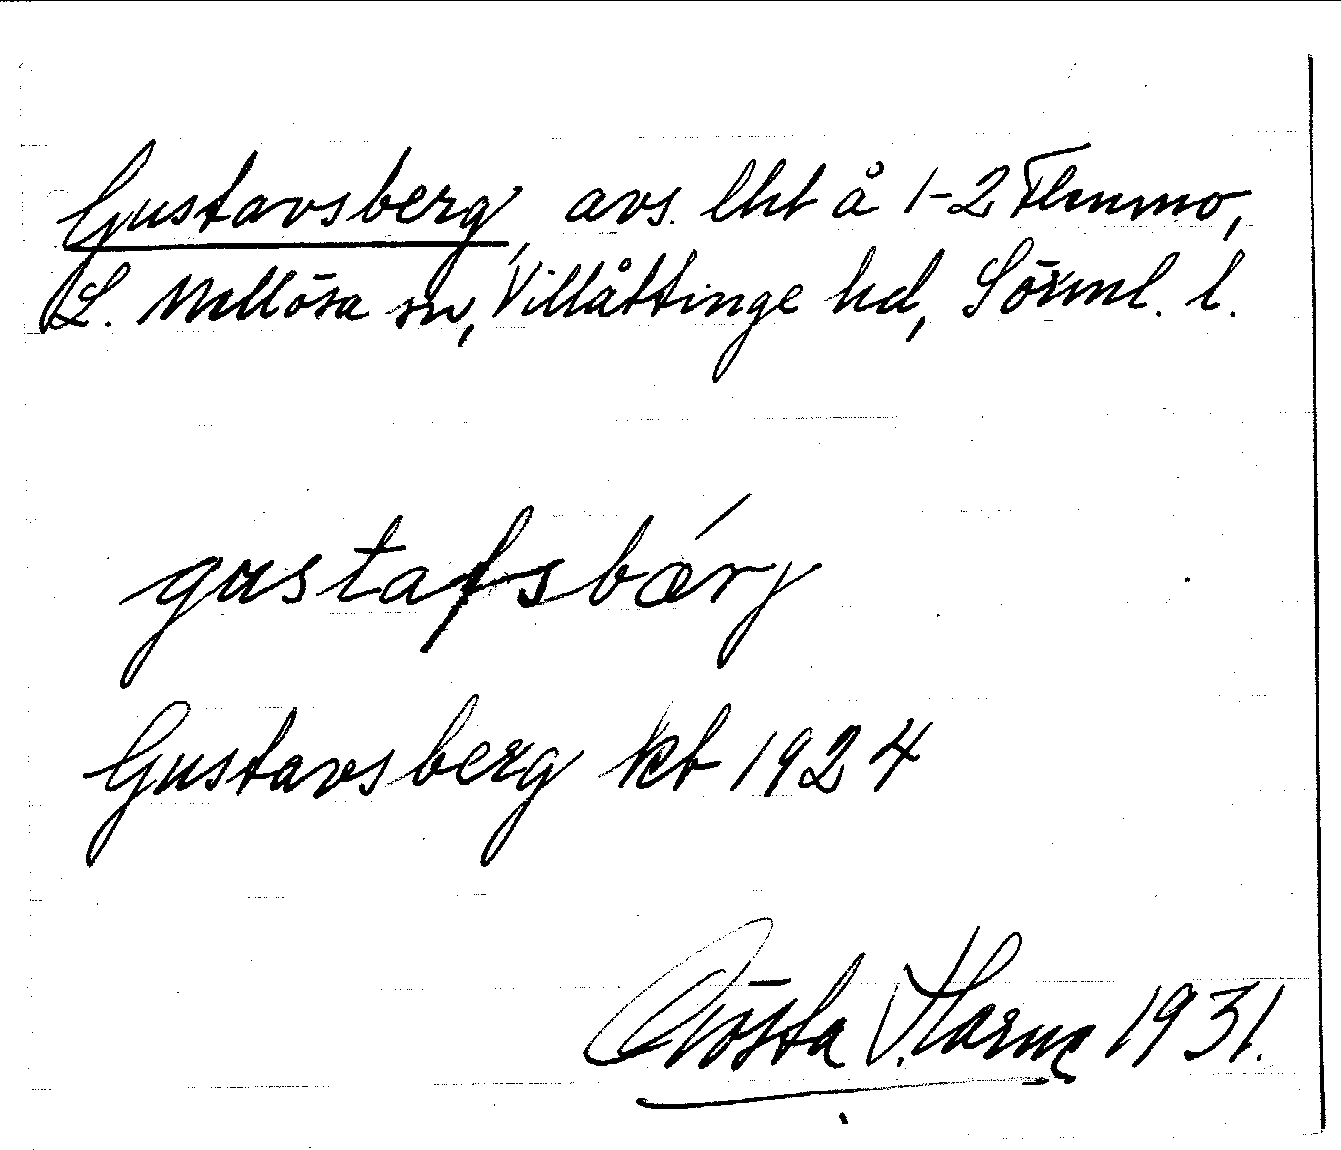 Gustavsberg, avs. lht å 1-2 Flenmo,
L. Mellösa sn, Villåttinge hd, Sörml. l.
gustafsbǽrj
Gustavsberg kb 1924
Gösta V. Harne 1931.